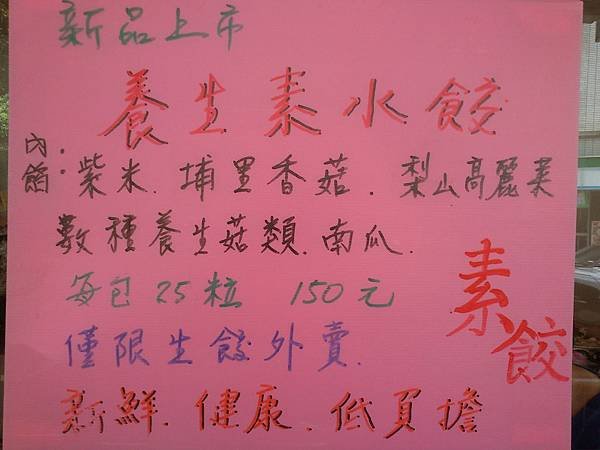 新品上市
養生素水餃
內餡：紫米.埔里香菇.梨山高麗菜
數種養生菇類.南瓜.
每包25粒 150元
僅限生餃外賣.
新鮮.健康.低負擔
素餃